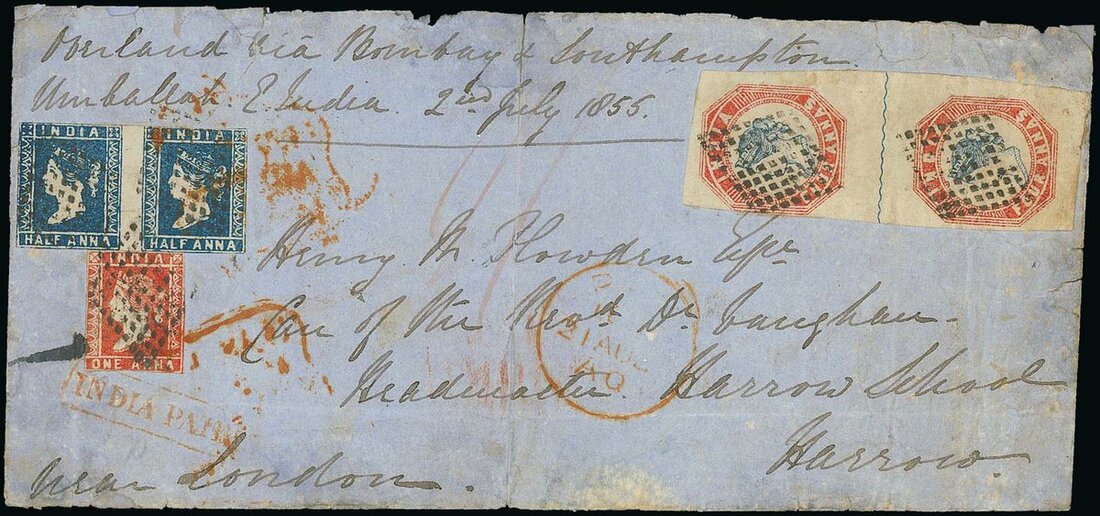 Overland via Bombay & Southampton
Umballah E. India 2nd July 1855.
INDIA
HALF ANNA
INDIA
HALF ANNA
INDIA
ONE ANNA
INDIA FOUR ANNAS
INDIA FOUR ANNAS
Henry M. Plowden Esqre
Care of the Revd. Dr. Vaughan
21 AU
Headmaster Harrow School
INDIA PAID
Harrow
near London.